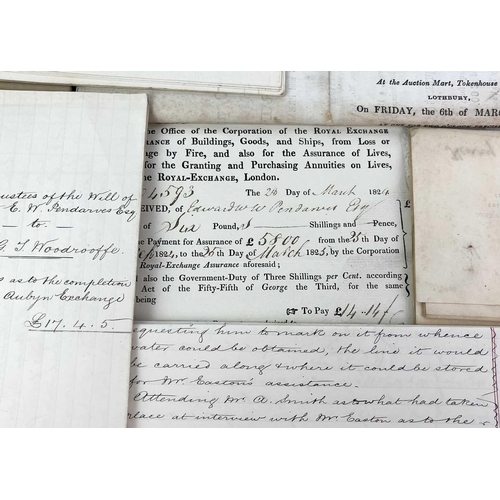 At the Auction Mart, Tokenhouse
LOTHBURY,
On FRIDAY, the 6th of MAR
the Office of the Corporation of the ROYAL EXCHANGE
RANCE of Buildings, Goods, and Ships, from Loss or
age by Fire, and also for the Assurance of Lives,
for the Granting and Purchasing Annuities on Lives,
he ROYAL-EXCHANGE, London.
4,593 The 26 Day of March 1824
EIVED, of Edward W W Pendarves Esq
of Six Pound, 5 Shillings and Pence,
he Payment for Assurance of £5800 from the 25 Day
1824, to the 25 Day of March 1825, by the Corporation
Royal-Exchange Assurance aforesaid;
also the Government-Duty of Three Shillings per Cent. according
Act of the Fifty-Fifth of George the Third, for the same
being
To Pay £14.14
ustees of the Will of
E. W. Pendarves Esq
to
T Woodrooffe
s as to the completion
Aubyn Exchange
£17.4.5.
equesting him to mark on it from whence
water could be obtained, the line it would
be carried along & where it could be stored
for Mr Easton's assistance.
Attending Mr A. Smith as to what had taken
lace at interview with Mr Easton as to the